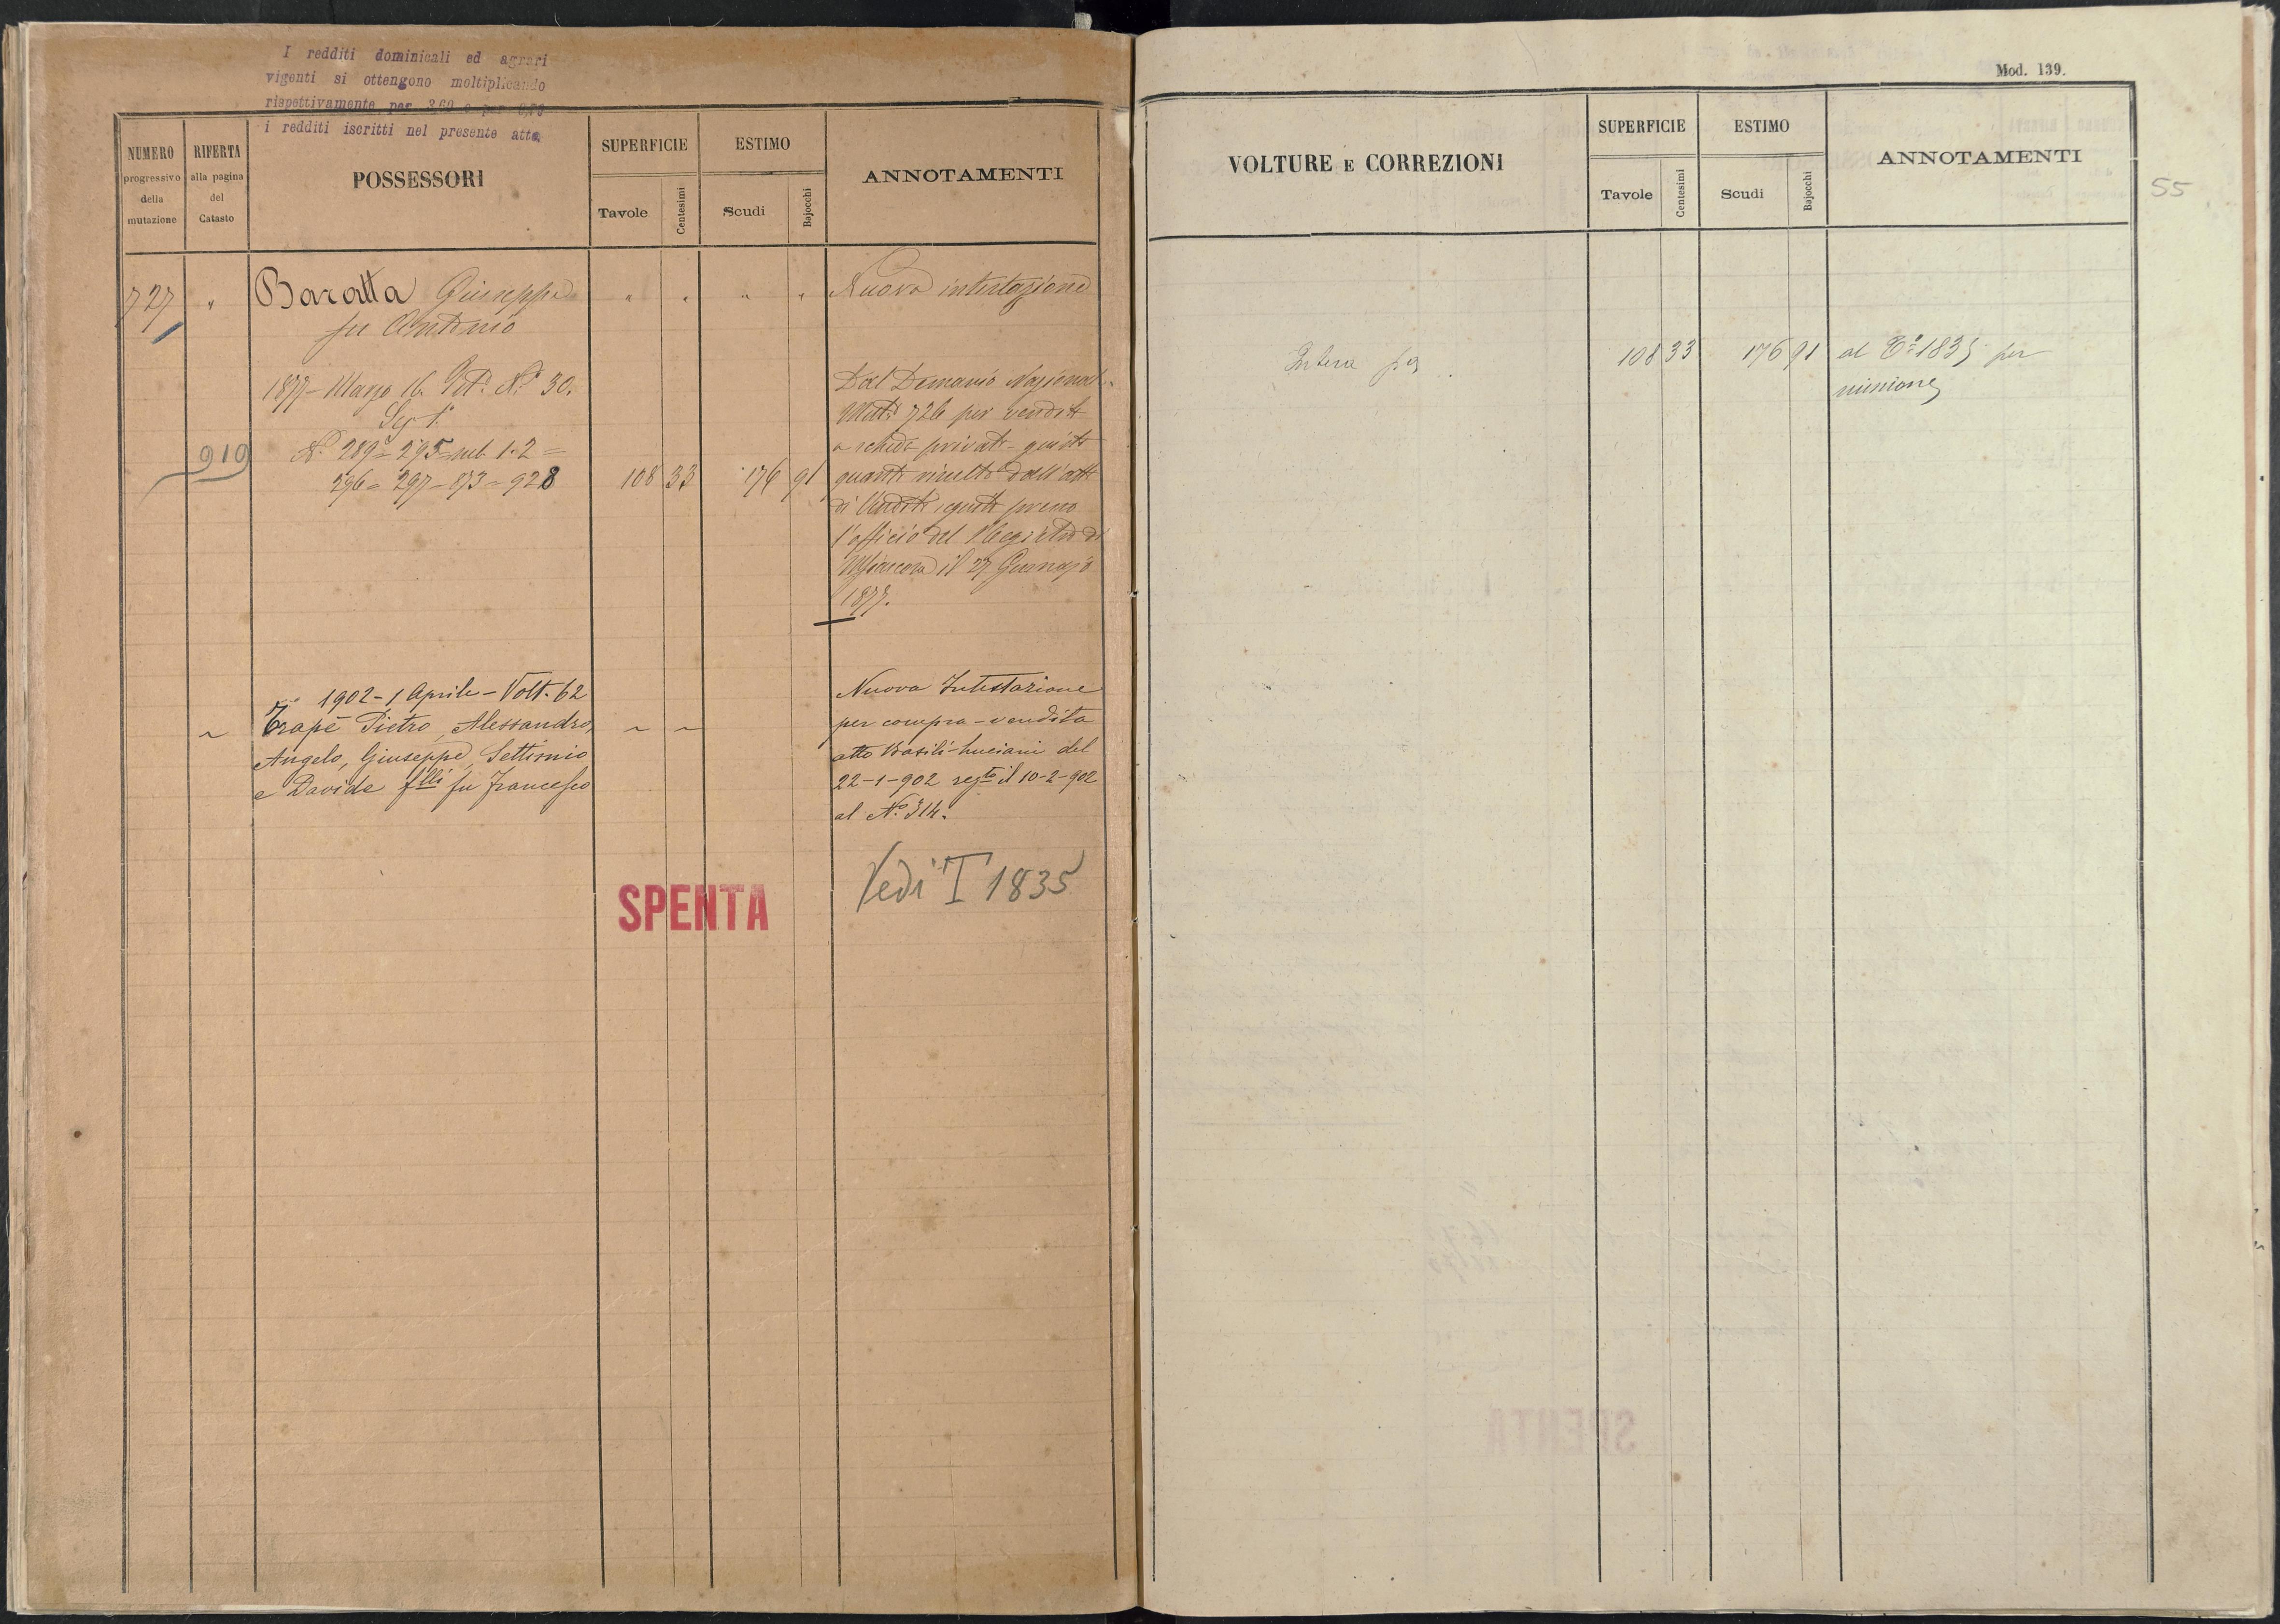 I redditi dominicali ed agrari
vigenti si ottengono moltiplicando
rispettivamente per 3,60 e per
i redditi iscritti nel presente atto
NUMERO progressivo della mutazione
RIFERTA alla pagina del Catasto
POSSESSORI
SUPERFICIE
Tavole
Centesimi
ESTIMO
Scudi
Bajocchi
ANNOTAMENTI
727 " Baratta Giuseppe " " " " Nuova intestazione
fu Antonio
1877 - Marzo 16. N.° 30.
Dal Demanio Nazionale
726 per vendita
a schede private - giusta
919
N.° 289 = 295 sub 1.2 =
296 = 297 - 873 = 928 108 33 176 91
quanto risulta dall'atto
di Vendita presso
l'officio del Registro di
il 27 Gennajo
1877.
1902 - 1 Aprile - Volt. 62
Trapè Pietro, Alessandro,
Angelo, Giuseppe, Settimio
e Davide f.lli fu Francesco
Nuova Intestazione
per compra-vendita
atto Basili-Luciani del
22-1-902 regto il 10-2-902
al N.° 314.
SPENTA
Vedi T 1835
Mod. 139.
VOLTURE E CORREZIONI
SUPERFICIE
Tavole
Centesimi
ESTIMO
Scudi
Bajocchi
ANNOTAMENTI
55
Intera pa 108 33 176 91 al 1835 per
riunione